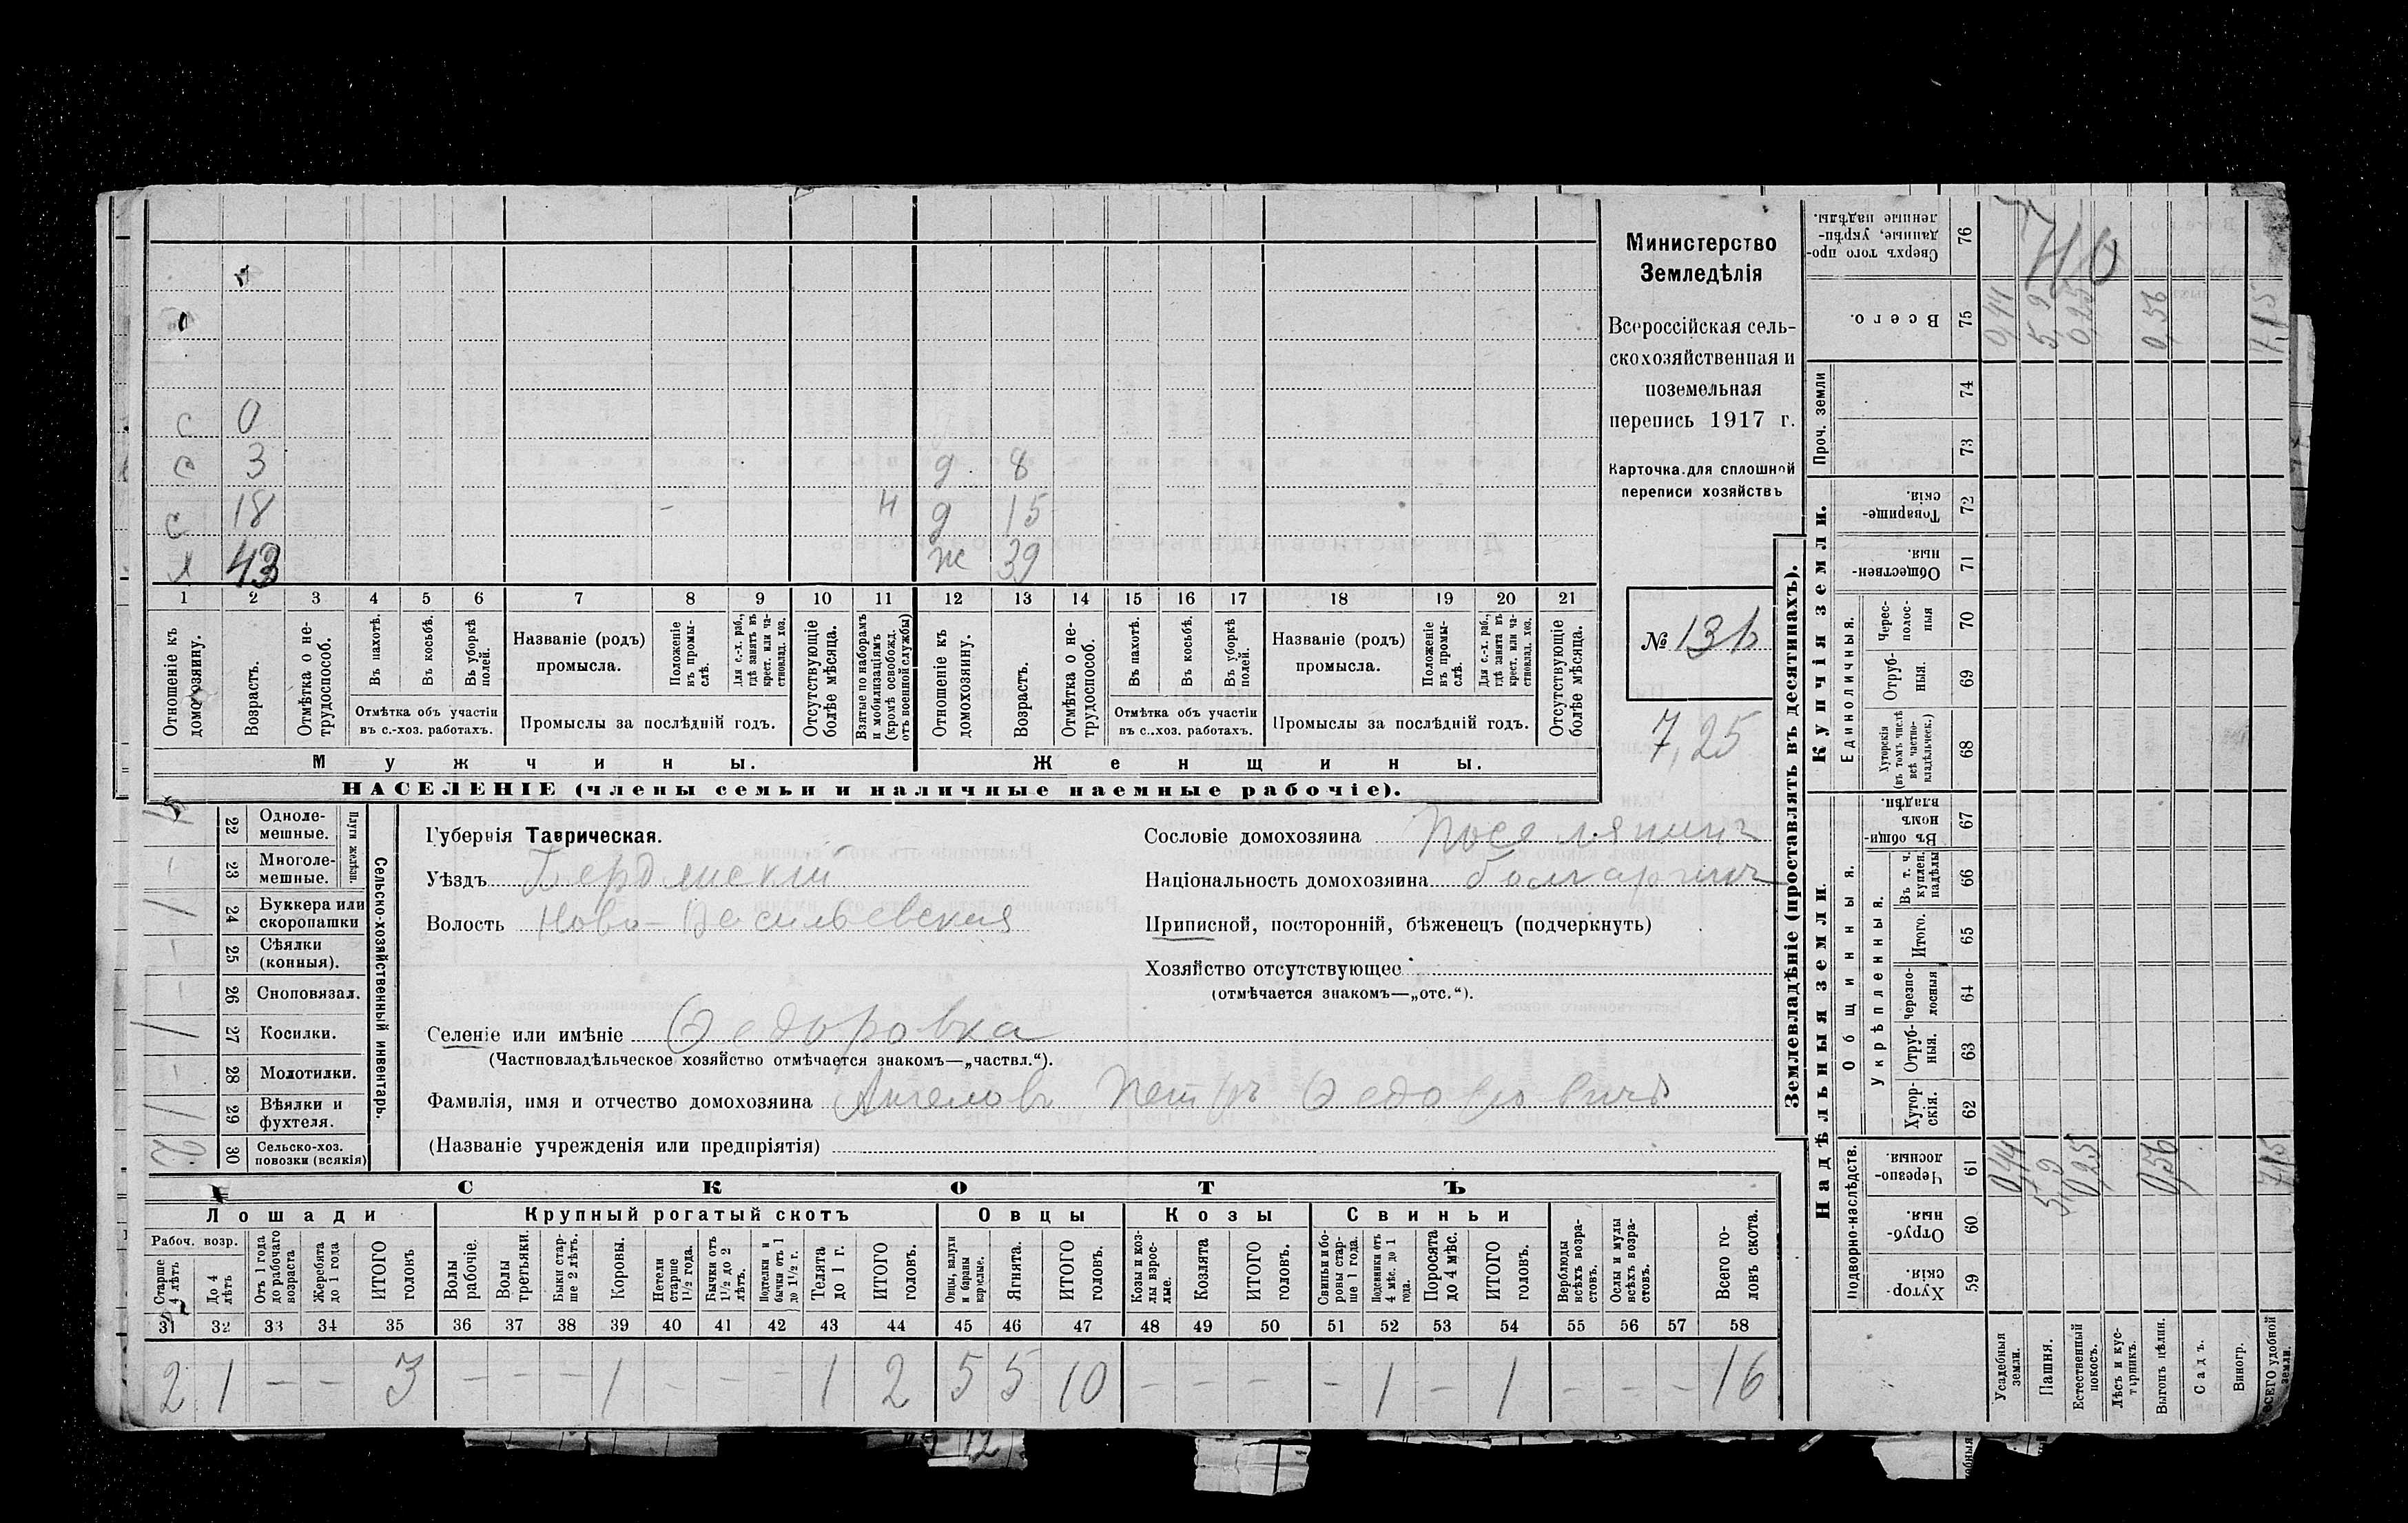 с 0
с 3 д 8
с 18 н д 15
я 43 ж 39
1 2 3 4 5 6 7 8 9 10 11 12 13 14 15 16 17 18 19 20 21
Отношеніе къ домохозяину.
Возрастъ.
Отмѣтка о нетрудоспособ.
Въ пахотѣ.
Въ косьбѣ.
Въ уборкѣ полей.
Отмѣтка объ участіи
въ с.-хоз. работахъ.
Названіе (родъ)
промысла.
Положеніе въ промыслѣ.
Для с.-х. раб., гдѣ занятъ въ крест. или частновлад. хоз.
Промыслы за послѣдній годъ.
Отсутствующіе болѣе мѣсяца.
Взятые по наборамъ и мобилизаціямъ (кромѣ освобожд. отъ военной службы)
Отношеніе къ домохозяину.
Возрастъ.
Отмѣтка о нетрудоспособ.
Въ пахотѣ.
Въ косьбѣ.
Въ уборкѣ полей.
Отмѣтка объ участіи
въ с.-хоз. работахъ.
Названіе (родъ)
промысла.
Положеніе въ промыслѣ.
Для с.-х. раб., гдѣ занятъ въ крест. или частновлад. хоз.
Промыслы за послѣдній годъ.
Отсутствующіе болѣе мѣсяца.
Мужчины. Женщины.
НАСЕЛЕНІЕ (члены семьи и наличные наемные рабочіе).
Министерство
Земледѣлія
Всероссійская сель-
скохозяйственная и
поземельная
перепись 1917 г.
Карточка для сплошной
переписи хозяйствъ
№ 136
7,25
Сельско-хозяйственный инвентарь.
Плуги желѣзн.
22 Одноле-
мешные.
- 23 Многоле-
мешные.
1 24 Буккера или
скоропашки
- 25 Сѣялки
(конныя).
- 26 Сноповязал.
1 27 Косилки.
- 28 Молотилки.
1 29 Вѣялки и
фухтеля.
30 Сельско-хоз.
повозки (всякія)
Губернія Таврическая.
Уѣздъ Бердянскій
Волость Ново-Васильевская
Селеніе или имѣніе Ѳедоровка
(Частновладѣльческое хозяйство отмѣчается знакомъ—„частвл.“).
Фамилія, имя и отчество домохозяина Ангеловъ Петръ Ѳедоровичъ
(Названіе учрежденія или предпріятія)
Сословіе домохозяина поселянинъ
Національность домохозяина болгаринъ
Приписной, посторонній, бѣженецъ (подчеркнуть)
Хозяйство отсутствующее
(отмѣчается знакомъ—„отс.“).
СКОТЪ
Лошади Крупный рогатый скотъ Овцы Козы Свиньи
Рабоч. возр.
Старше 4 лѣтъ
До 4 лѣтъ
Отъ 1 года до рабочаго возраста
Жеребята до 1 года
ИТОГО головъ
Волы рабочіе.
Волы третьяки.
Быки старше 2 лѣтъ.
Коровы.
Нетели старше 1½ года.
Бычки отъ 1½ до 2 лѣтъ.
Подтелки и бычки отъ 1 до 1½ г.
Телята до 1 г.
ИТОГО головъ.
Овцы, валухи и бараны взрослые.
Ягнята.
ИТОГО головъ.
Козы и козлы взрослые.
Козлята
ИТОГО головъ.
Свиньи и боровы старше 1 года.
Подсвинки отъ 4 мѣс. до 1 года.
Поросята до 4 мѣс.
ИТОГО головъ.
Верблюды всѣхъ возрастовъ.
Ослы и мулы всѣхъ возрастовъ.
Всего головъ скота.
31 32 33 34 35 36 37 38 39 40 41 42 43 44 45 46 47 48 49 50 51 52 53 54 55 56 57 58
2 1 - - 3 - - - 1 - - - 1 2 5 5 10 - - - - 1 - 1 - - - 16
Землевладѣніе (проставлять въ десятинахъ).
Надѣльныя земли. Купчія земли.
Подворно-наслѣдств.
Общинныя.
Укрѣпленныя.
Единоличныя.
Проч. земли
Сверхъ того проданные, укрѣпленные надѣлы. 76
Всего. 75
74
73
Товарищескія. 72
Общественныя. 71
Черес-полосныя 70
Отрубныя. 69
Хуторскія (въ томъ числѣ всѣ частновладѣльческ.) 68
Въ общинномъ владѣн. 67
Въ т. ч. куплен. надѣлы 66
Итого. 65
Черезполосныя 64
Отрубныя. 63
Хуторскія. 62
Черезполосныя. 61
Отрубныя. 60
Хуторскія. 59
Усадебныя земли. 0,44 0,44
Пашня. 5,9 5,9
Естественный покосъ. 0,25 0,25
Лѣсъ и кустарникъ.
Выгонъ цѣлин. 0,56 0,56
Садъ.
Виногр.
ВСЕГО удобной земли. 7,15 7,15